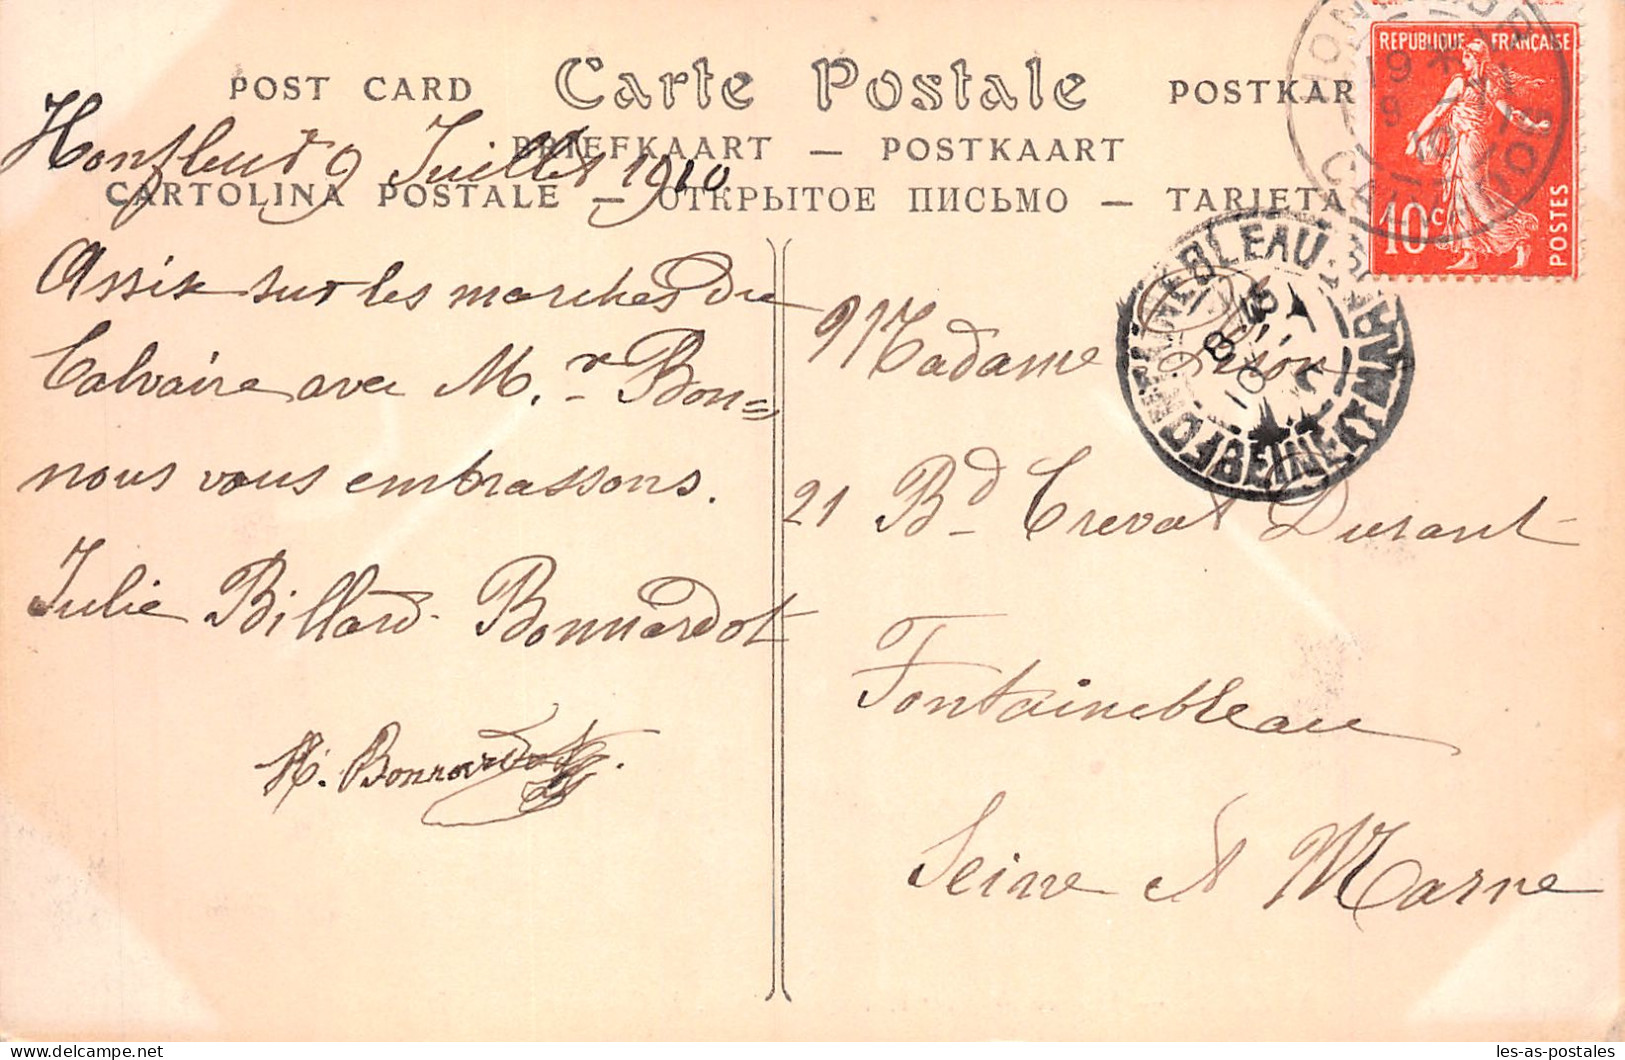 POST CARD Carte Postale POSTKAR
BRIEFKAART — POSTKAART
CARTOLINA POSTALE — ОТКРЫТОЕ ПИСЬМО — TARJETA
Honfleur 9 Juillet 1910
Assis sur les marches du
Calvaire avec M.r Bon=
nous vous embrassons.
Julie Billard-Bonnardot
H. Bonnardot
REPUBLIQUE FRANÇAISE
10c
POSTES
HONFLEUR
CALVADOS
FONTAINEBLEAU
SEINE ET MARNE
Madame
21 Bd Crevat Durant
Fontainebleau
Seine et Marne
les-as-postales